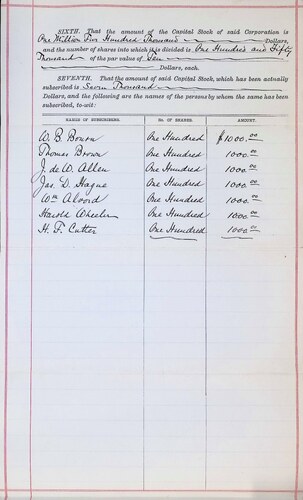 SIXTH. That the amount of the Capital Stock of said Corporation is
One Million Five Hundred Thousand Dollars,
and the number of shares into which it is divided is One Hundred and Fifty
Thousand of the par value of Ten
Dollars, each.
SEVENTH. That the amount of said Capital Stock, which has been actually
subscribed is Seven Thousand
Dollars, and the following are the names of the persons by whom the same has been
subscribed, to-wit:
NAMES OF SUBSCRIBERS. NO. OF SHARES. AMOUNT.
W. B. Bourn One Hundred $1000.00
Thomas Brown One Hundred 1000.00
J. de W. Allen One Hundred 1000.00
Jas. D. Hague One Hundred 1000.00
Wm Alvord One Hundred 1000.00
Harold Wheeler One Hundred 1000.00
H. F. Cutter One Hundred 1000.00